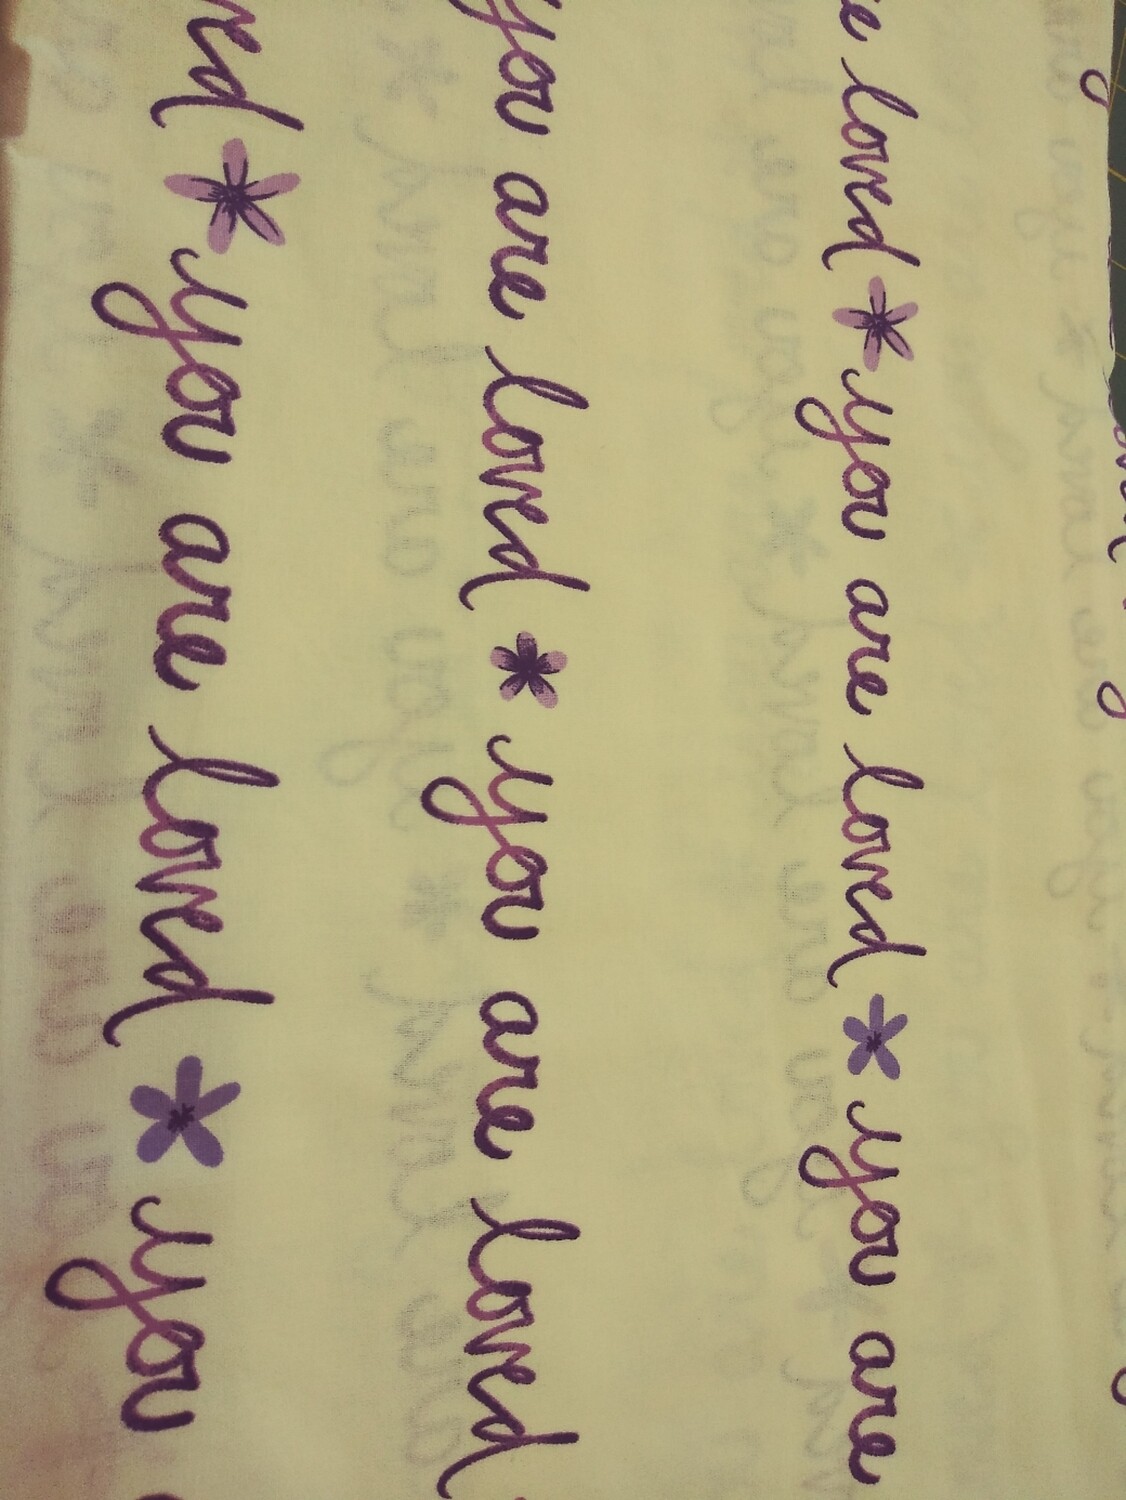 loved you are loved you are
you are loved you are loved
you are loved you